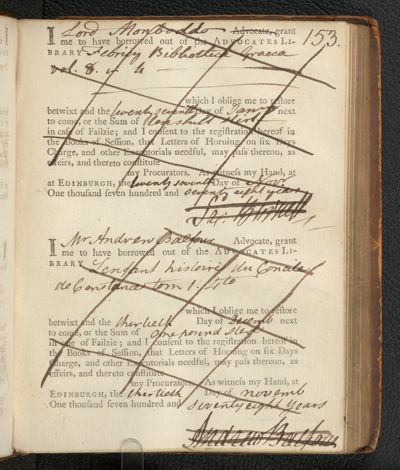 153.
I Lord Monboddo Advocate, grant
me to have borrowed out of the ADVOCATES LI-
BRARY Fabricij Bibliotheca Graeca
vol. 8. 4
which I oblige me to restore
betwixt and the twenty seventh Day of next
to come, or the Sum of
in case of Failzie; and I consent to the registration hereof in
the Books of Session, that Letters of Horning on six Days
Charge, and other Executorials needful, may pass thereon, as
effeirs, and thereto constitute
my Procurators. As witness my Hand, at
at EDINBURGH, the twenty seventh Day of
One thousand seven hundred and seventy eight years
I Mr Andrew Balfour Advocate, grant
me to have borrowed out of the ADVOCATES LI-
BRARY Lenfant histoire du Concile
de Constance tom 1. 4to
which I oblige me to restore
betwixt and the thirtieth Day of Decemb next
to come, or the Sum of One pound Ster
in case of Failzie; and I consent to the registration hereof in
the Books of Session, that Letters of Horning on six Days
Charge, and other Executorials needful, may pass thereon, as
effeirs, and thereto constitute
my Procurators. As witness my Hand, at
EDINBURGH, the thirtieth Day of novemb
One thousand seven hundred and seventy eight years
Andrew Balfour